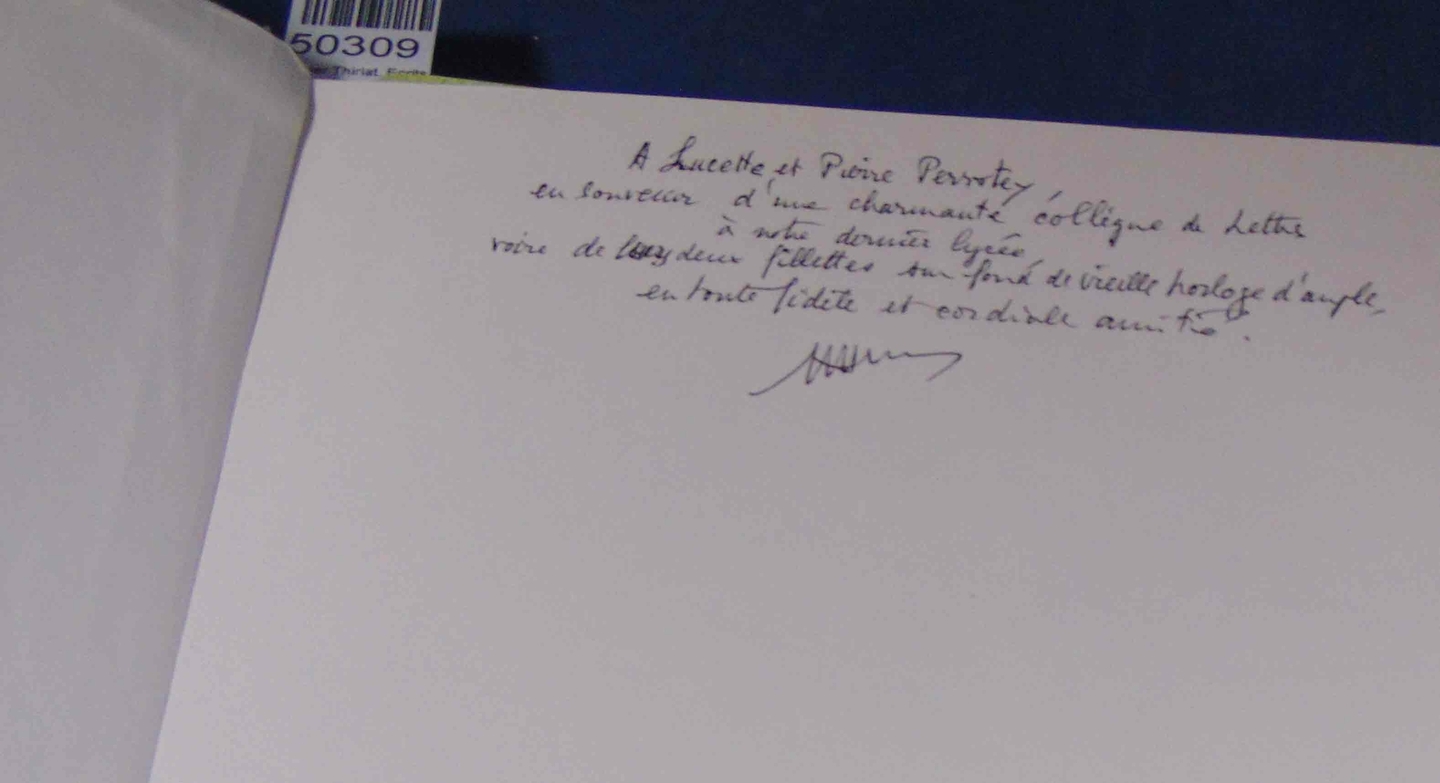 50309
Thiriat, Ecrits
A Lucette et Pierre Perrotey,
en souvenir d'une charmante collègue de Lettres
à notre dernier lycée,
voire de deux fillettes sur fond de vieille horloge d'angle,
en toute fidèle et cordiale amitié.